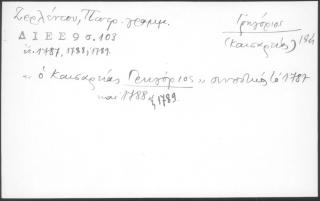 Σερλέντου, Πατρ. γράμμ.
Δ Ι Ε Ε 9 σ. 108
ἐ. 1787, 1788, 1789.
Γρηγόριος
(Καισαρείας)
« ὁ Καισαρείας Γρηγόριος » συνοδικὸς τῷ 1787
καὶ 1788 & 1789.